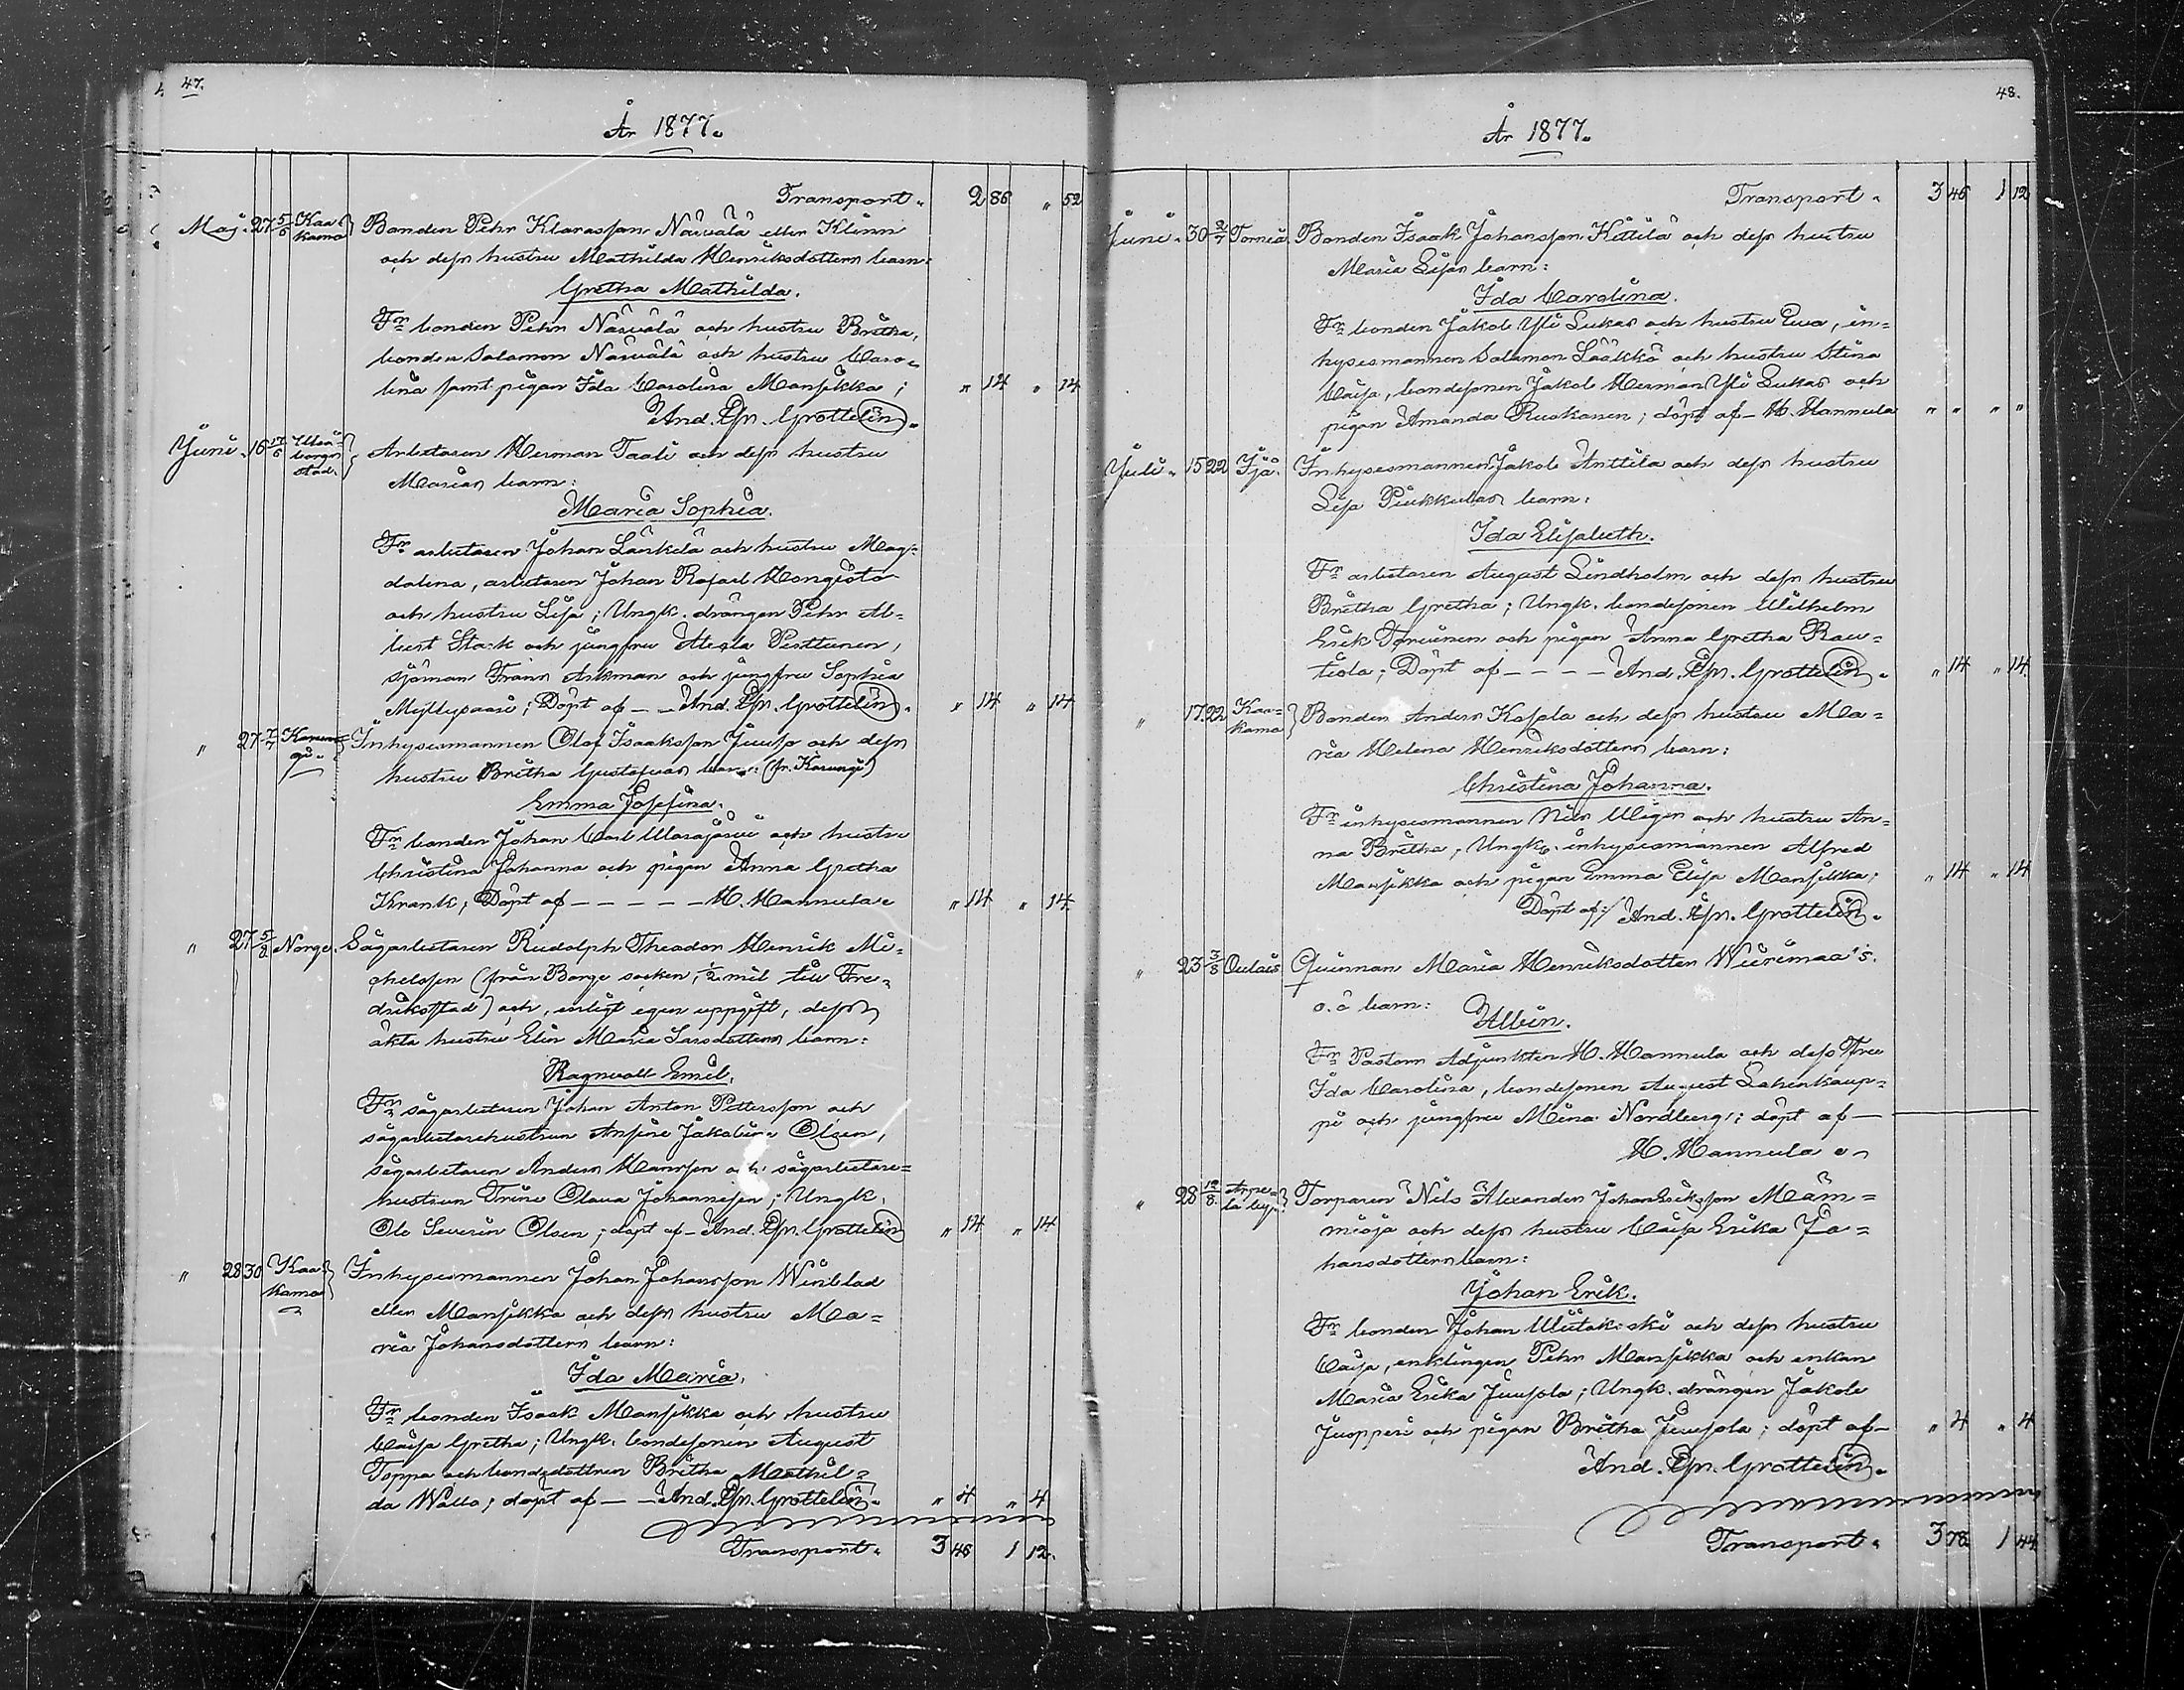 47.
År 1877.
Transport. 2 86 " 52
Maj. 27 5/6 Kaakama Bonden Pehr Klarasson Näwälä eller Klinn
och dess hustru Mathilda Henriksdotters barn:
Gretha Mathilda.
Fr bonden Pehr Näwälä och hustru Britha,
bonden Salomon Näwälä och hustru Caro=
lina samt pigan Ida Carolina Mansikka; " 14 " 14
And. Joh. Grottelin.
Juni. 16 17/6 Uleåborgs stad. Arbetaren Herman Taali och dess hustru
Marias barn:
Maria Sophia.
Fr arbetaren Johan Länkelä och hustru Mag=
dalena, arbetaren Johan Rafael Hongisto
och hustru Lisa; Ungk. drängen Pehr Al=
bert Stark och jungfru Alexla Perttunen,
sjöman Frans Askman och jungfru Sophia
Myllysaari; Döpt af — — And. Joh. Grottelin. " 14 " 14
" 27 7/7 Karungi. Inhysesmannen Olof Isaksson Juuso och dess
hustru Britha Gustafvas barn: (fr. Karungi)
Emma Josefina.
Fr bonden Johan Carl Warajärvi och hustru
Christina Johanna och pigan Anna Gretha
Krank; Döpt af — — — — — H. Hannula. " 14 " 14.
" 27 5/8 Norge. Sågarbetaren Rudolph Theodor Henrik Mi=
chelsen (från Borge socken, 1/2 mil till Fre=
drikstad) och, enligt egen uppgift, dess
äkta hustru Elin Maria Larsdotters barn:
Ragnvald Emil.
Fr sågarbetaren Johan Anton Pettersson och
sågarbetarehustrun Ansine Jakobine Olsen,
sågarbetaren Anders Hansson och sågarbetare=
hustrun Trine Olava Johannesen; Ungk.
Ole Severin Olsen; döpt af — And. Joh. Grottelin " 14 " 14
" 28 30 Kaakama Inhysesmannen Johan Johansson Winblad
eller Mansikka och dess hustru Ma=
ria Johansdotters barn:
Ida Maria.
Fr bonden Isaak Mansikka och hustru
Caisa Gretha; Ungk. bondesonen August
Toppa och bondedottren Britha Mathil=
da Wallo; döpt af — — And. Joh. Grottelin. " 4 " 4
Transport. 3 46 1 12.
48.
År 1877.
Transport. 3 46 1 12
Juni. 30 2/7 Torneå. Bonden Isaak Johansson Kittilä och dess hustru
Maria Lisas barn:
Ida Carolina.
Fr bonden Jakob Yli Lukas och hustru Ewa, in=
hysesmannen Salomon Lääkkö och hustru Stina
Caisa, bondesonen Jakob Herman Yli Lukas och
pigan Amanda Ruskanen; döpt af — H. Hannula " " " "
Juli. 15 22 Ijo. Inhysesmannen Jakob Anttila och dess hustru
Lisa Piukkulas barn:
Ida Elisabeth.
Fr arbetaren August Lindholm och dess hustru
Britha Gretha; Ungk. bondesonen Wilhelm
Erik Torvinen och pigan Anna Gretha Rau=
tiola; Döpt af — — — — And. Joh. Grottelin. " 14 " 14.
" 17. 22 Kaakama Bonden Anders Kassla och dess hustru Ma=
ria Helena Henriksdotters barn:
Christina Johanna.
Fr inhysesmannen Nils Wigen och hustru An=
na Britha; Ungk. inhysesmannen Alfred
Mansikka och pigan Emma Elisa Mansikka; " 14 " 14
Döpt af: And. Joh. Grottelin.
" 23 3/8 Oulais Qvinnan Maria Henriksdotter Wiirimaa's.
o.ä barn:
Albin.
Fr Pastors Adjunkten H. Hannula och dess Fru
Ida Carolina, bondesonen August Lahenkaup=
pi och jungfru Mina Nordberg; döpt af —
H. Hannula
" 28 12/8. Arpela by. Torparen Nils Alexander Johan Eriksson Mäm=
mioja och dess hustru Caisa Erika Jo=
hansdotters barn:
Johan Erik.
Fr bonden Johan Uutakoski och dess hustru
Caisa, enklingen Pehr Mansikka och enkan
Maria Erika Juusola; Ungk. drängen Jakob
Juopperi och pigan Britha Juusola; döpt af — " 4 " 4
And. Joh. Grottelin.
Transport. 3 78 1 44